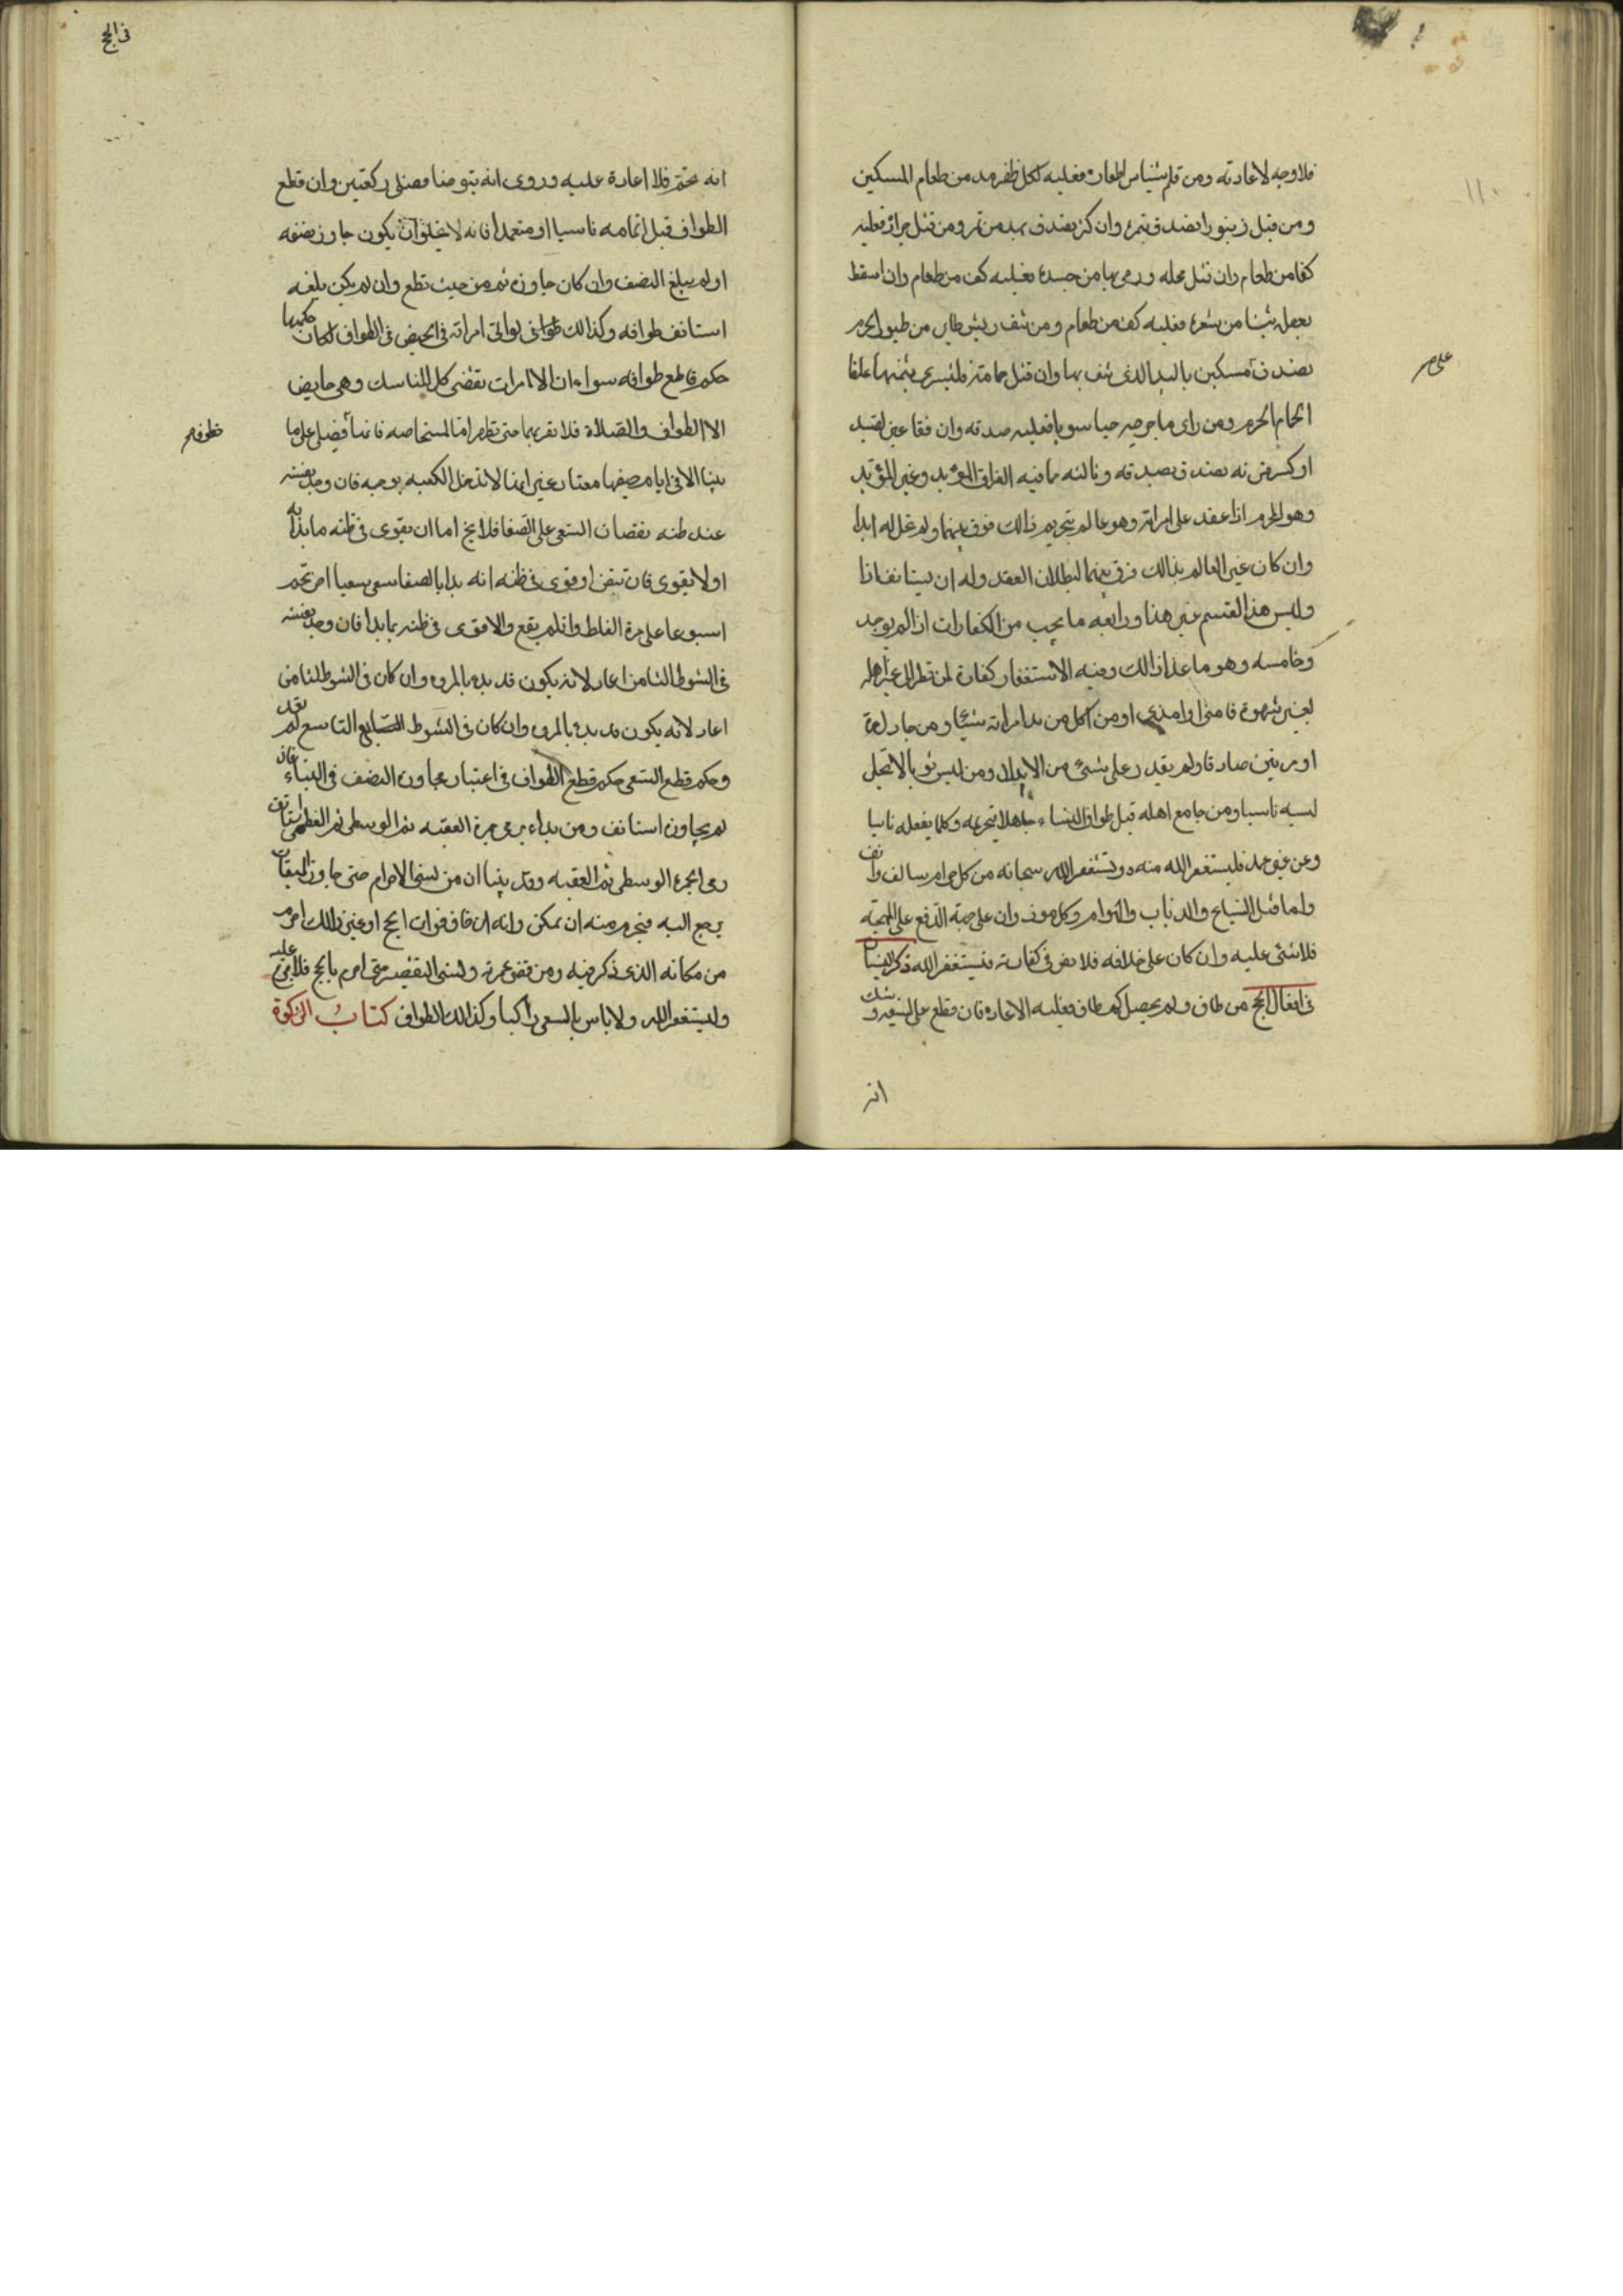 ١١٠
فلا وجه لاعادته ومن قلم شيئا من اظفاره فعليه لكل ظفر مد من طعام المسكين
ومن قتل زنبورا تصدق بتمرة وان كثر تصدق بمد من تمر ومن قتل جرادة فعليه
كفا من طعام وان قتل قملة ورمى بها من جسده فعليه كف من طعام وان اسقط
بفعله شيئا من شعره فعليه كف من طعام ومن نتف ريش طاير من طيور الحرم
تصدق على مسكين باليد الذى نتف بها وان قتل حمامة فليشترى بثمنها علفا
لحمام الحرم ومن راى ما جرحه حيا سويا فعليه صدقة وان فقا عين الصيد
او كسر قرنه تصدق بصدقة وثالثه ما فيه الفراق المؤبد وغير المؤبد
وهو المحرم اذا عقد على امراة وهو عالم بتحريم ذالك فرق بينهما ولم تحل له ابدا
وان كان غير العالم بذالك فرق بينهما لبطلان العقد وله ان يستانف اذا
وليس هذا القسم غير هذا ورابعه ما يجب من الكفارات اذا لم يوجد
وخامسه وهو ما عدا ذالك وفيه الاستغفار كفارة لمن نظر الى غير اهله
بغير شهوة فامنى او امذى او من اكل من يد امراته شيئا ومن جادل مرة
او مرتين صادقا ولم يقدر على شىء من الابدال ومن لبس ثوبا لا يحل
لبسه ناسيا ومن جامع اهله قبل طواف النساء جاهلا بتحريمه وكلما يفعله ناسيا
وعن غير عمد فليستغفر الله منه ويستغفر الله سبحانه من كل جرام سالف وانف
واما قتل السباع والذباب والهوام وكل موذ وان على جهة الدفع على المهجة
فلا شىء عليه وان كان على خلافه فلا نص فى كفارته فليستغفر الله ذكر النسيان
فى افعال الحج من طاف ولم يحصل كم طاف فعليه الاعادة فان قطع على السبعة وشك
انه
فى الحج
انه ختم فلا اعادة عليه وروى انه يتوضا ويصلى ركعتين وان قطع
الطواف قبل اتمامه ناسيا او متعمدا فانه لا يخلو ان يكون جاوز نصفه
او لم يبلغ النصف وان كان جاوزه تمم من حيث قطع وان لم يكن بلغه
استانف طوافه وكذالك امراة فى الحيض فى الطواف لكان حكمها
حكم قاطع طوافه سواء ان الامرات تقضى كل المناسك وهى حايض
الا الطواف والصلاة فلا تقربهما حتى تطهر اما المستحاضة فانها تصلى على ما
بينا الا فى ايام حيضها المعتاد غير انها لا تدخل الكعبة بوجه فان وجد نفسه
عند ظنه نقصان السعى على الصفا فلا يخ اما ان يقوى فى ظنه ما بدا به
او لا يقوى فان تيقن او قوى فى ظنه انه بدا بالصفا سعى سعيا اخر تمم
اسبوعا على مرة الغلط وان لم يقع ولا قوى فى ظنه بما بدا فان وجد نفسه
فى الشوط الثامن اعاد لانه يكون قد بدء بالمروه وان كان فى الشوط الثامن
اعاد لانه يكون قد بدء بالمروه وان كان فى الشوط التاسع لم يعد
وحكم قطع السعى حكم قطع الطواف فى اعتبار مجاوزة النصف فى البناء فان
لم يجاوزه استانف ومن بداء برمى جمرة العقبه ثم الوسطى ثم العظمى استانف
رمى الجمرة الوسطى ثم العقبه وقد بينا ان من نسى الاحرام حتى جاوز الميقات
يرجع اليه فيحرم منه ان تمكن وانه ان خاف فوات الحج او غير ذالك احرم
من مكانه الذى ذكر فيه ومن قضى عمرته ونسى التقصير حتى احرم بالحج فلا شىء عليه
وليستغفر الله ولا باس بالسعى راكبا وكذالك الطواف كتاب الزكوة